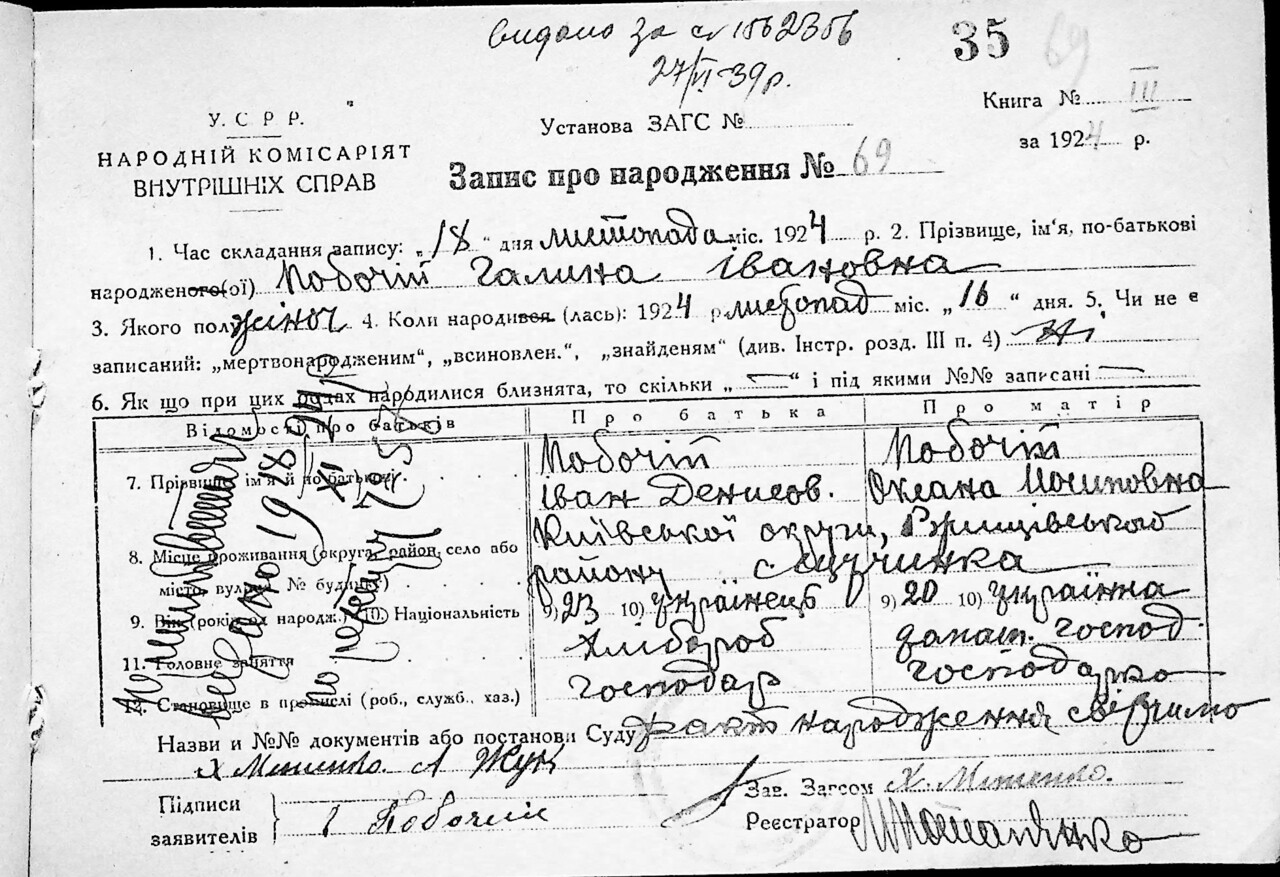 видано за
27/VI-39р.
35
69
У. С Р Р.
НАРОДНІЙ КОМІСАРІЯТ
ВНУТРІШНІХ СПРАВ
Установа ЗАГС №
Книга № III
за 1924 р.
Запис про народження № 69
1. Час складання запису: „18“ дня листопада міс. 1924 р. 2. Прізвище, ім'я, по-батькові
народженого(ої) Побочій Галина Івановна
3. Якого полу жіноч 4. Коли народився (лась): 1924 р. листопад міс. „16“ дня. 5. Чи не є
записаний: „мертвонародженим“, „всиновлен.“, „знайденям“ (див. Інстр. розд. III п. 4)
6. Як що при цих родах народилися близнята, то скільки „—“ і під якими №№ записані —
Відомості про батьків
Про батька
Про матір
7. Прізвище, ім'я й по батькові
Побочій
Іван Денисов.
Побочій
Оксана Йосиповна
8. Місце проживання (округа, район, село або
місто, вулиця, № будинку)
Київської округи, Ржищівського
району с Щучинка
9. Вік (років од народж.) 10. Національність
9) 23 10) українець
9) 20 10) українка
11. Головне заняття
Хлібороб
домаш. господ
12. Становище в промислі (роб., служб., хаз.)
господар
господарка
Назви и №№ документів або постанови Суду факт народження свідчимо
Х Мішенко. Жук
Підписи
заявителів
І Побочий
Зав. Загсом Х. Мішенко.
Реєстратор